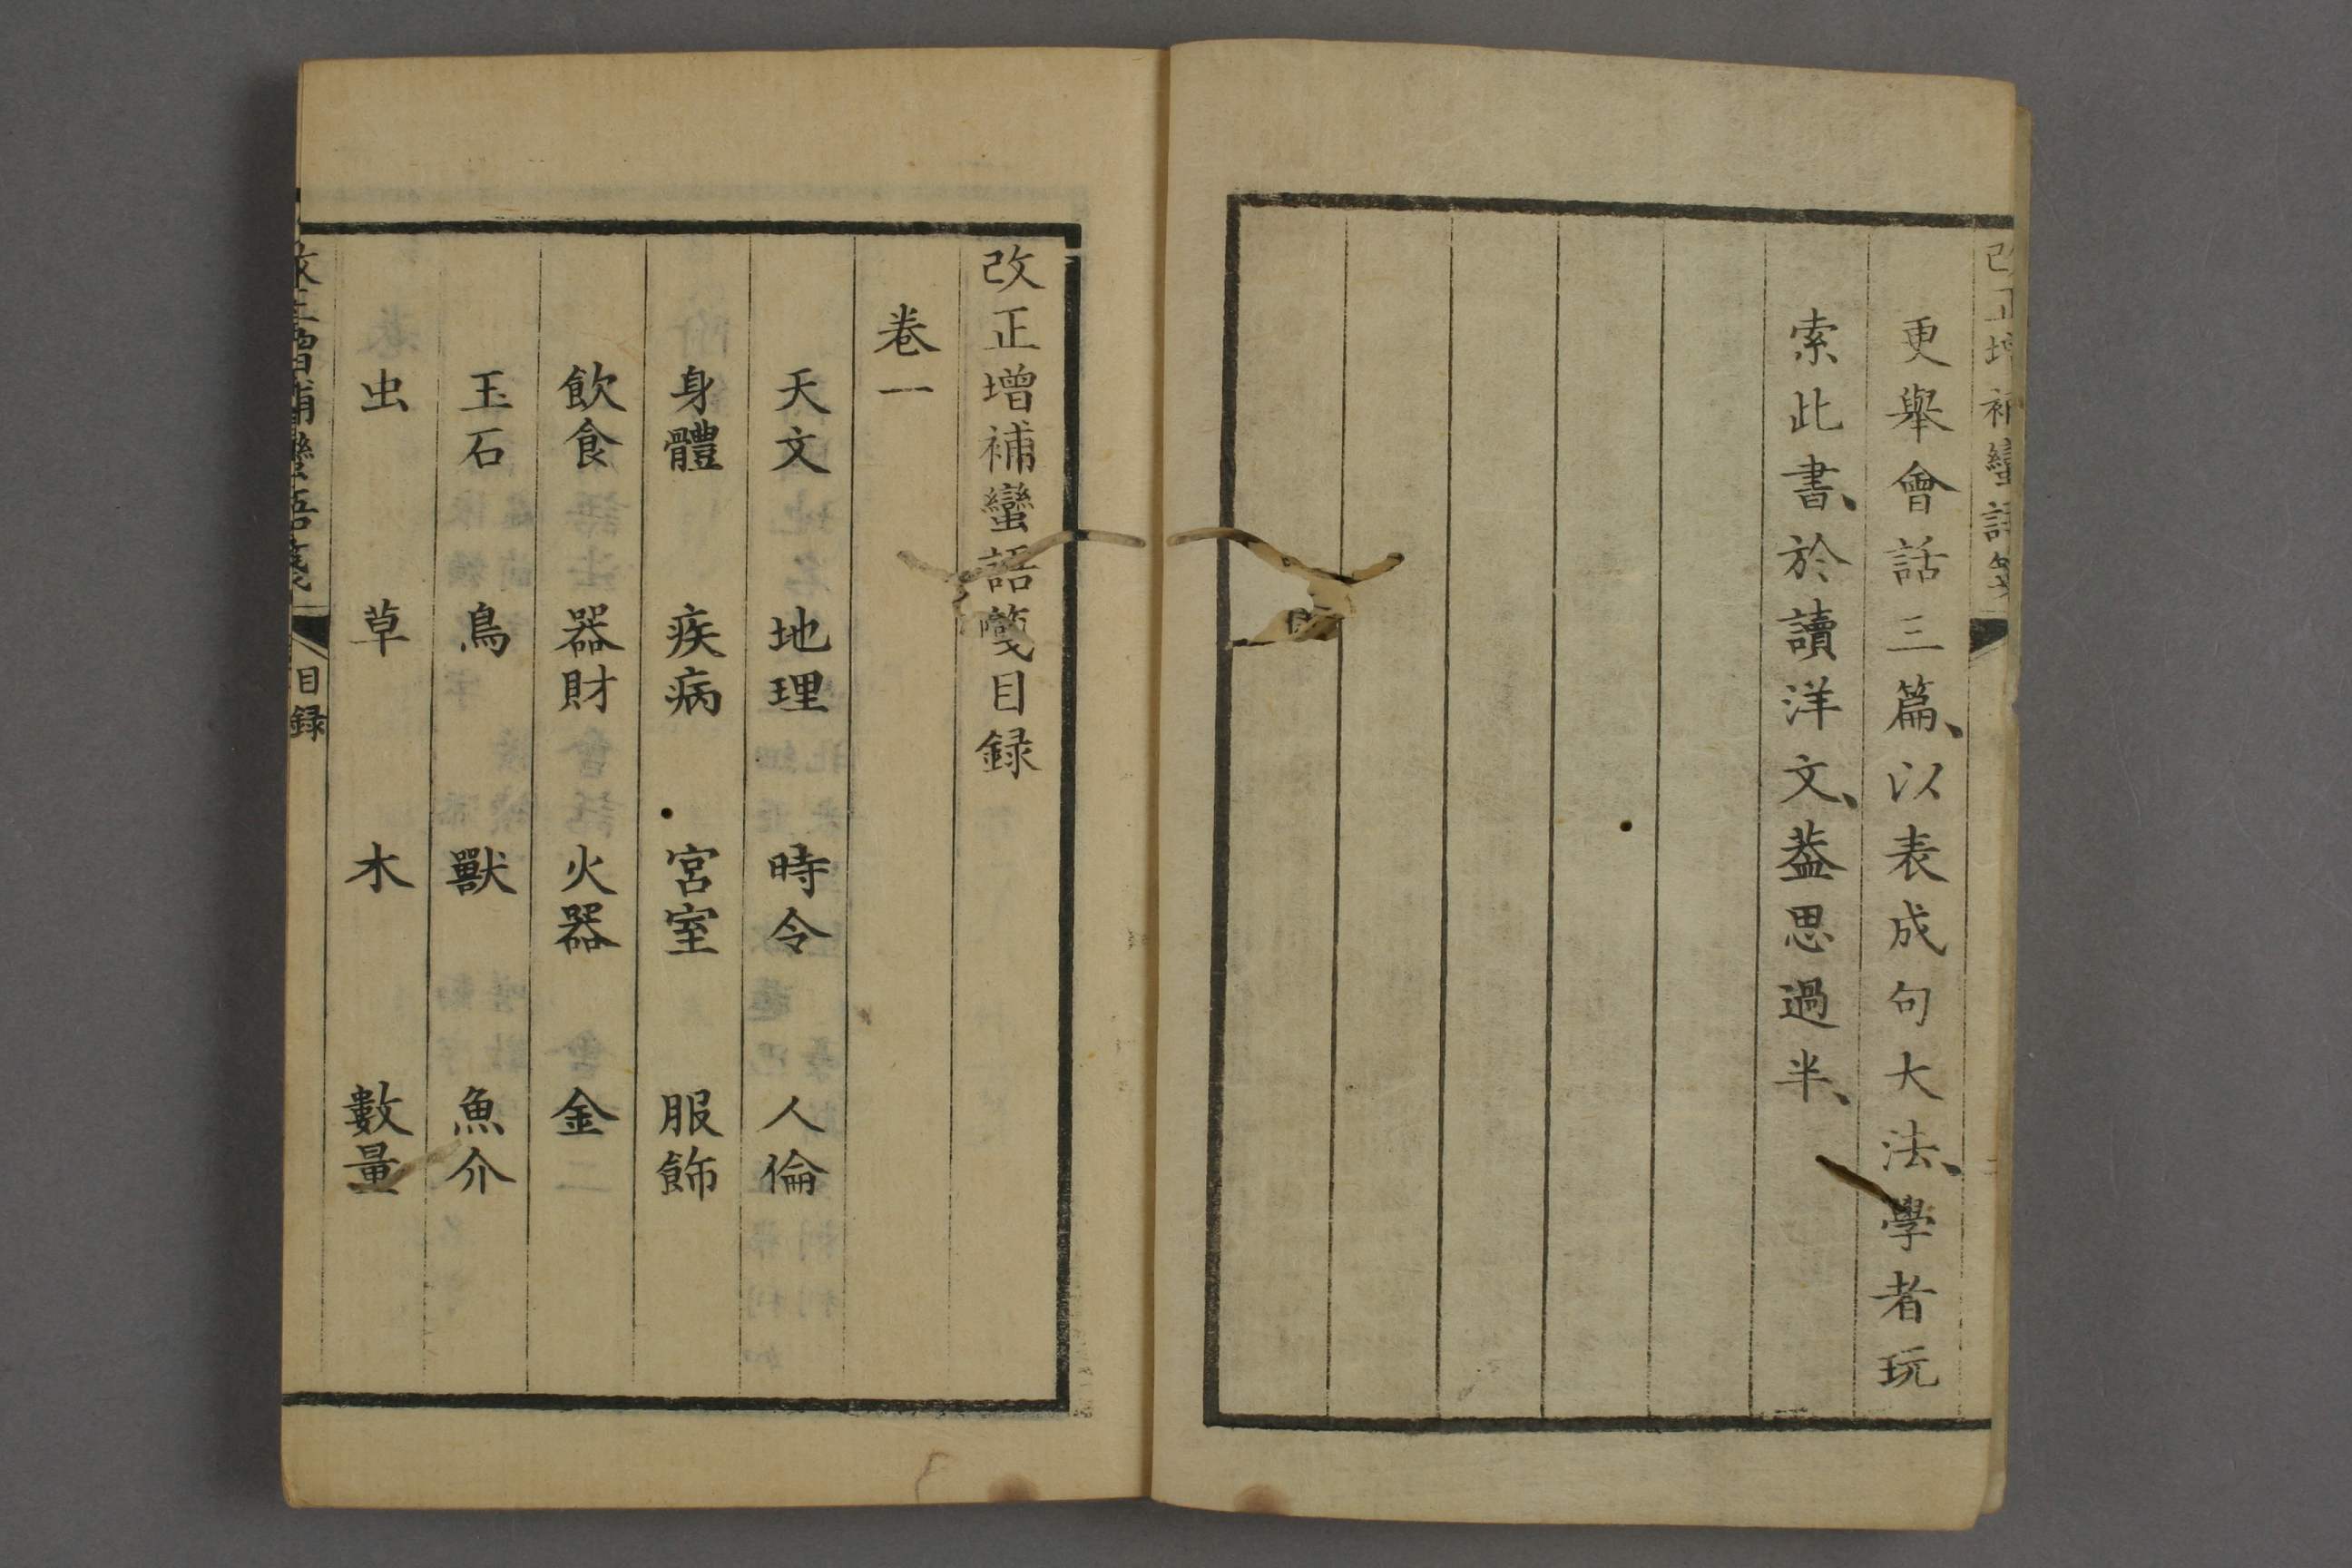 更舉會話三篇、以表成句大法、學者玩
索此書、於讀洋文、葢思過半、
改正增補蠻語箋目録
卷一
天文 地理 時令 人倫
身體 疾病 宮室 服飾
飲食 器財 火器 金
玉石 鳥 獸 魚介
虫 草 木 數量
改正增補蠻語箋 目録